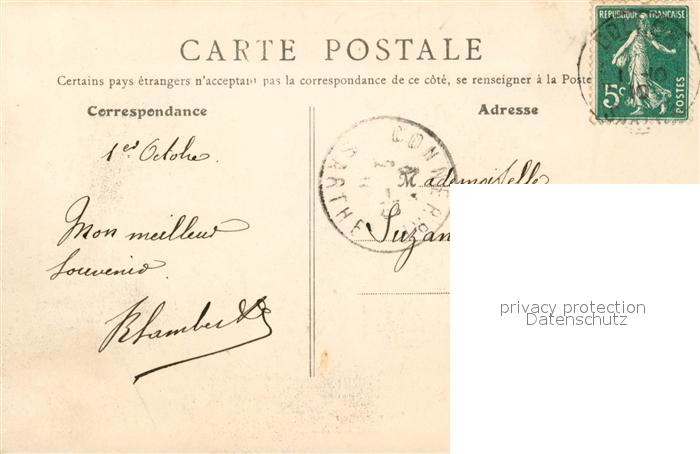 CARTE POSTALE
Certains pays étrangers n'acceptant pas la correspondance de ce côté, se renseigner à la Poste
Correspondance
Adresse
REPUBLIQUE FRANÇAISE
5c
POSTES
1er Octobre.
Mon meilleur
Souvenir.
CONNERRÉ
SARTHE
Mademoiselle
Suzan
privacy protection
Datenschutz